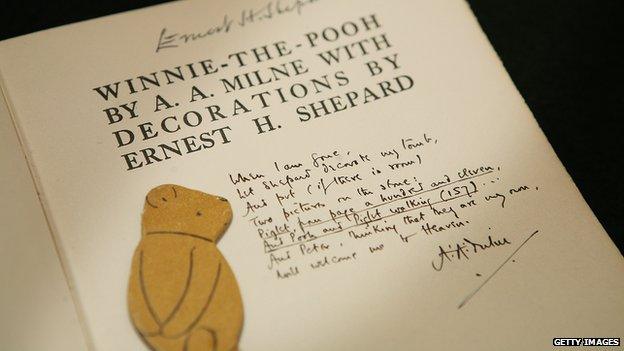 Ernest H. Shepard
WINNIE-THE-POOH
BY A. A. MILNE WITH
DECORATIONS BY
ERNEST H. SHEPARD
When I am gone,
Let Shepard decorate my tomb,
And put (if there is room)
Two pictures on the stone:
Piglet, from page a hundred and eleven,
And Pooh and Piglet walking (157)...
And Peter, thinking that they are my own,
Will welcome me to Heaven.
A.A. Milne
GETTY IMAGES